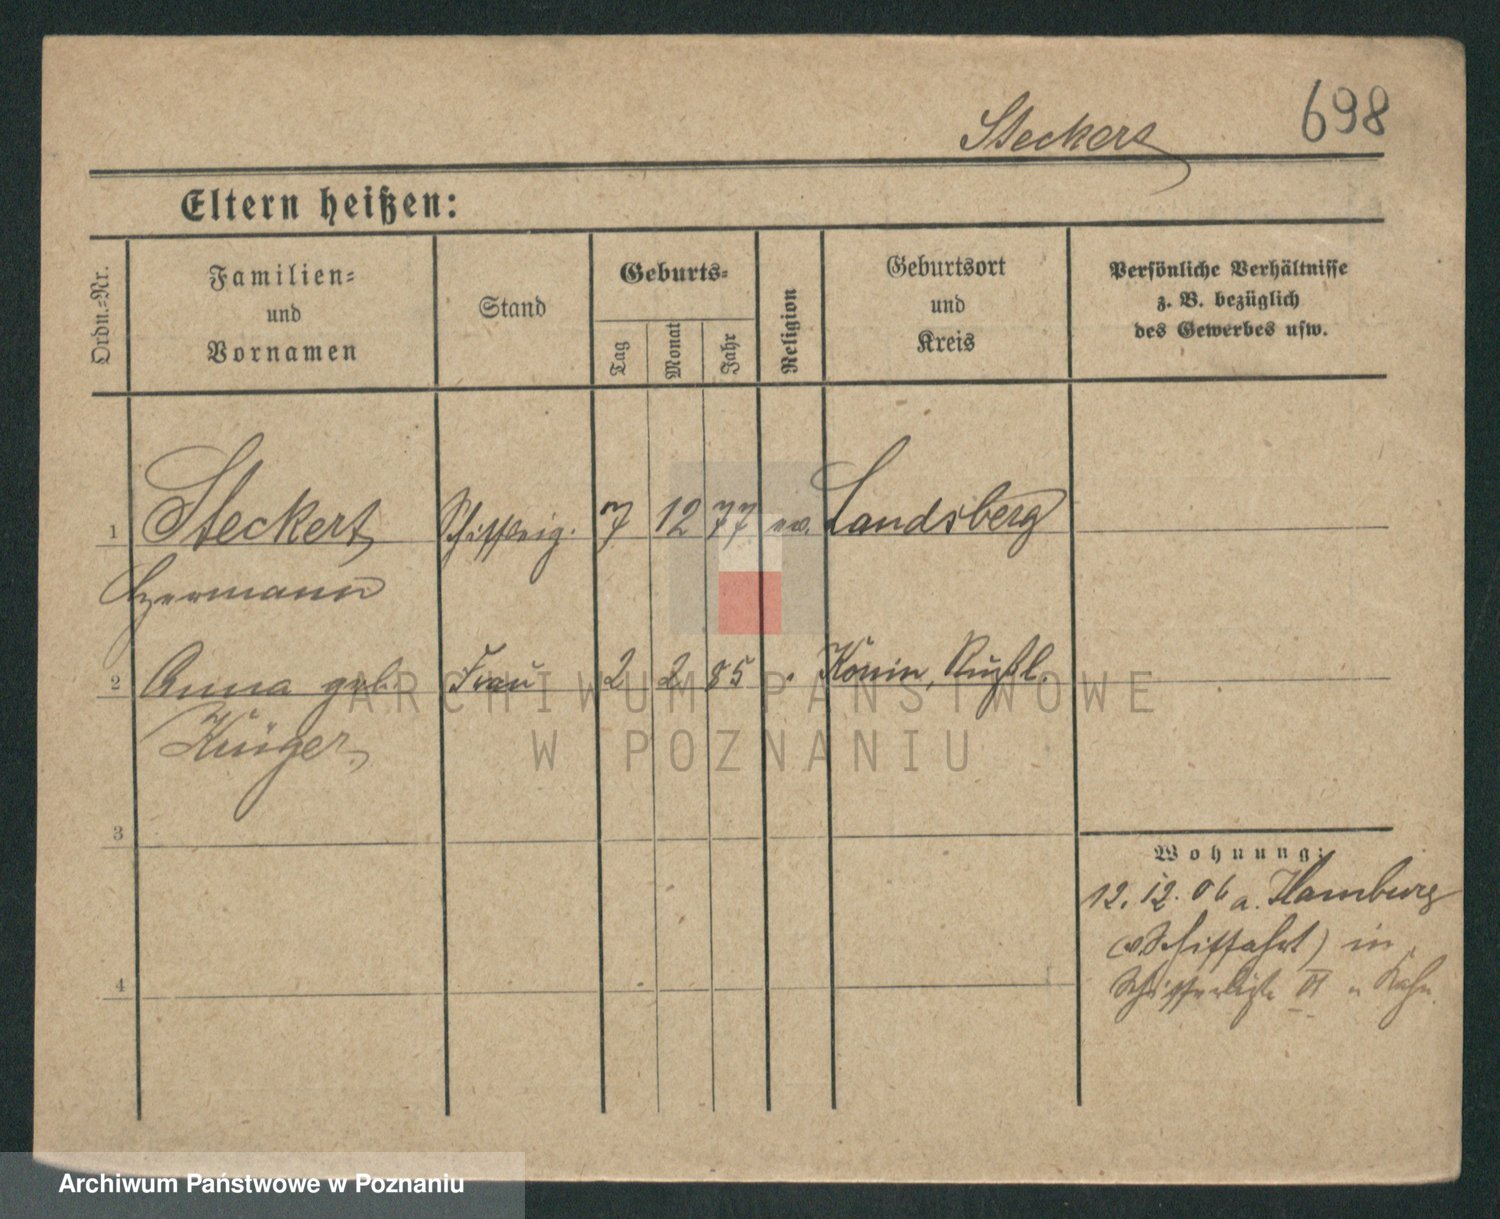 698
Steckert
Eltern heißen:
Ordn.=Nr.
Familien=
und
Vornamen
Stand
Geburts=
Tag
Monat
Jahr
Religion
Geburtsort
und
Kreis
Persönliche Verhältnisse
z. B. bezüglich
des Gewerbes usw.
1 Steckert Schiffseig. 7 12 77 ev. Landsberg
Hermann
2 Anna geb. Frau 2 2 85 Konin, Rußl.
Krüger
3
Wohnung:
12. 12. 06 a. Hamburg
(Schiffahrt) in
4
VI Kahn
ARCHIWUM PAŃSTWOWE
W POZNANIU
Archiwum Państwowe w Poznaniu